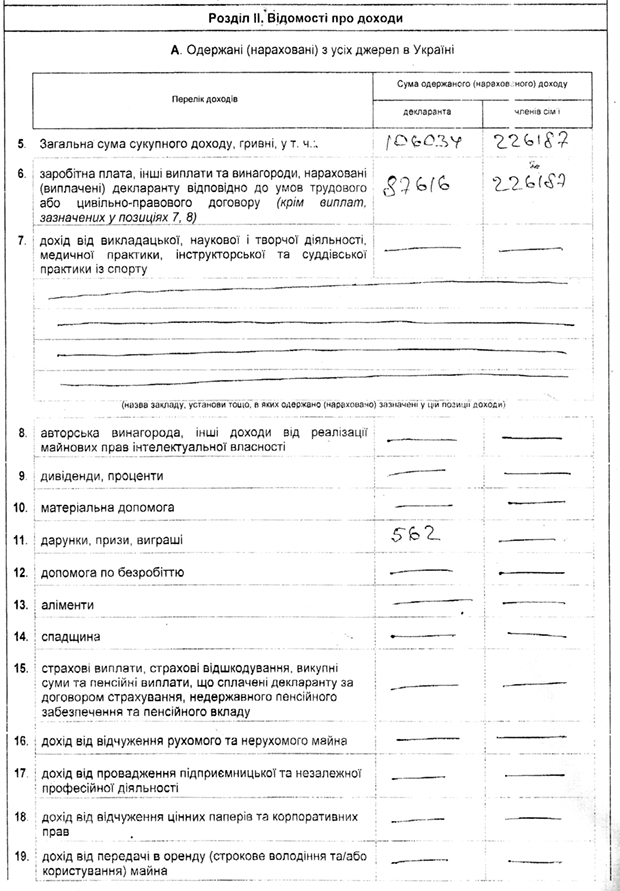 Розділ II. Відомості про доходи
А. Одержані (нараховані) з усіх джерел в Україні
Перелік доходів
Сума одержаного (нарахованого) доходу
декларанта
членів сім'ї
5. Загальна сума сукупного доходу, гривні, у т. ч.: 106034 226187
6. заробітна плата, інші виплати та винагороди, нараховані 87616 226187
(виплачені) декларанту відповідно до умов трудового
або цивільно-правового договору (крім виплат,
зазначених у позиціях 7, 8)
7. дохід від викладацької, наукової і творчої діяльності,
медичної практики, інструкторської та суддівської
практики із спорту
(назва закладу, установи тощо, в яких одержано (нараховано) зазначені у цій позиції доходи)
8. авторська винагорода, інші доходи від реалізації
майнових прав інтелектуальної власності
9. дивіденди, проценти
10. матеріальна допомога
11. дарунки, призи, виграші 562
12. допомога по безробіттю
13. аліменти
14. спадщина
15. страхові виплати, страхові відшкодування, викупні
суми та пенсійні виплати, що сплачені декларанту за
договором страхування, недержавного пенсійного
забезпечення та пенсійного вкладу
16. дохід від відчуження рухомого та нерухомого майна
17. дохід від провадження підприємницької та незалежної
професійної діяльності
18. дохід від відчуження цінних паперів та корпоративних
прав
19. дохід від передачі в оренду (строкове володіння та/або
користування) майна